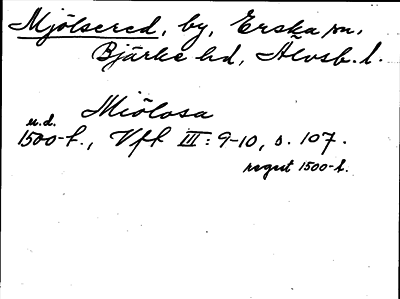 Mjölsered, by, Erska sn,
Bjärke hd, Älvsb. l.
Miölosa
u.d.
1500-t., Vfl III: 9-10, s. 107.
regest 1500-t.